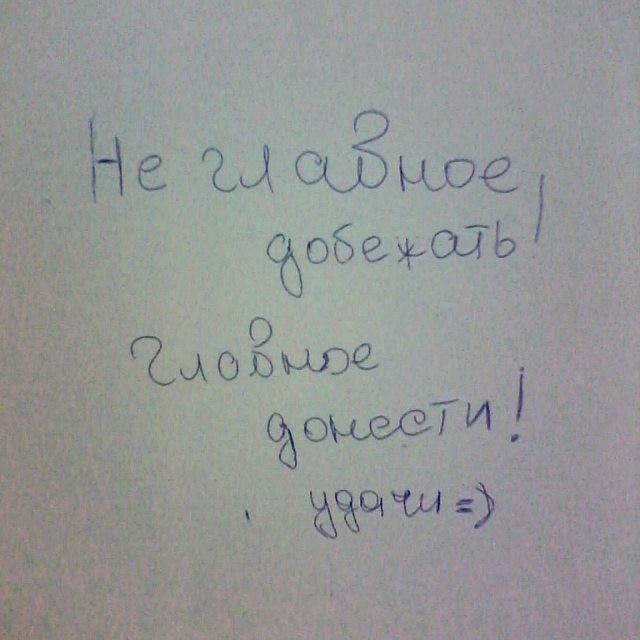 Не главное
добежать!
главное
донести!
удачи =)